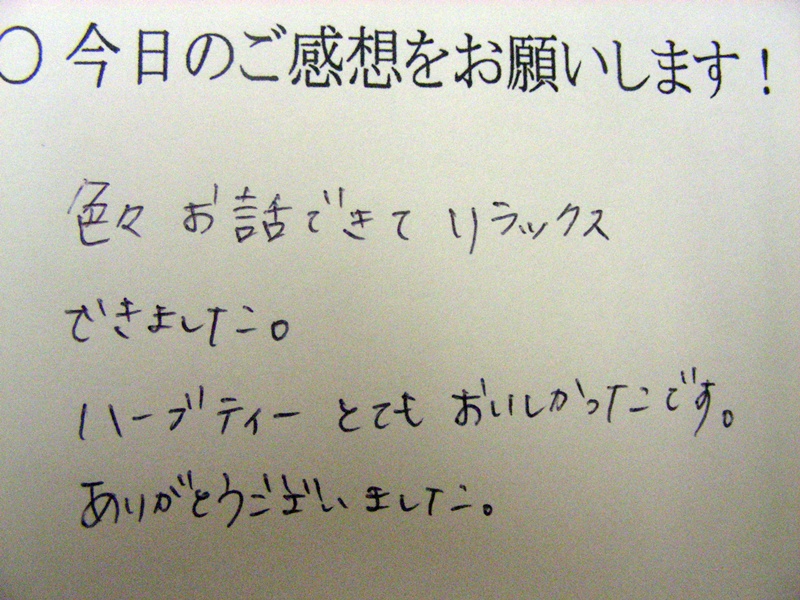 ○今日のご感想をお願いします！
色々お話できてリラックス
できました。
ハーブティーとてもおいしかったです。
ありがとうございました。